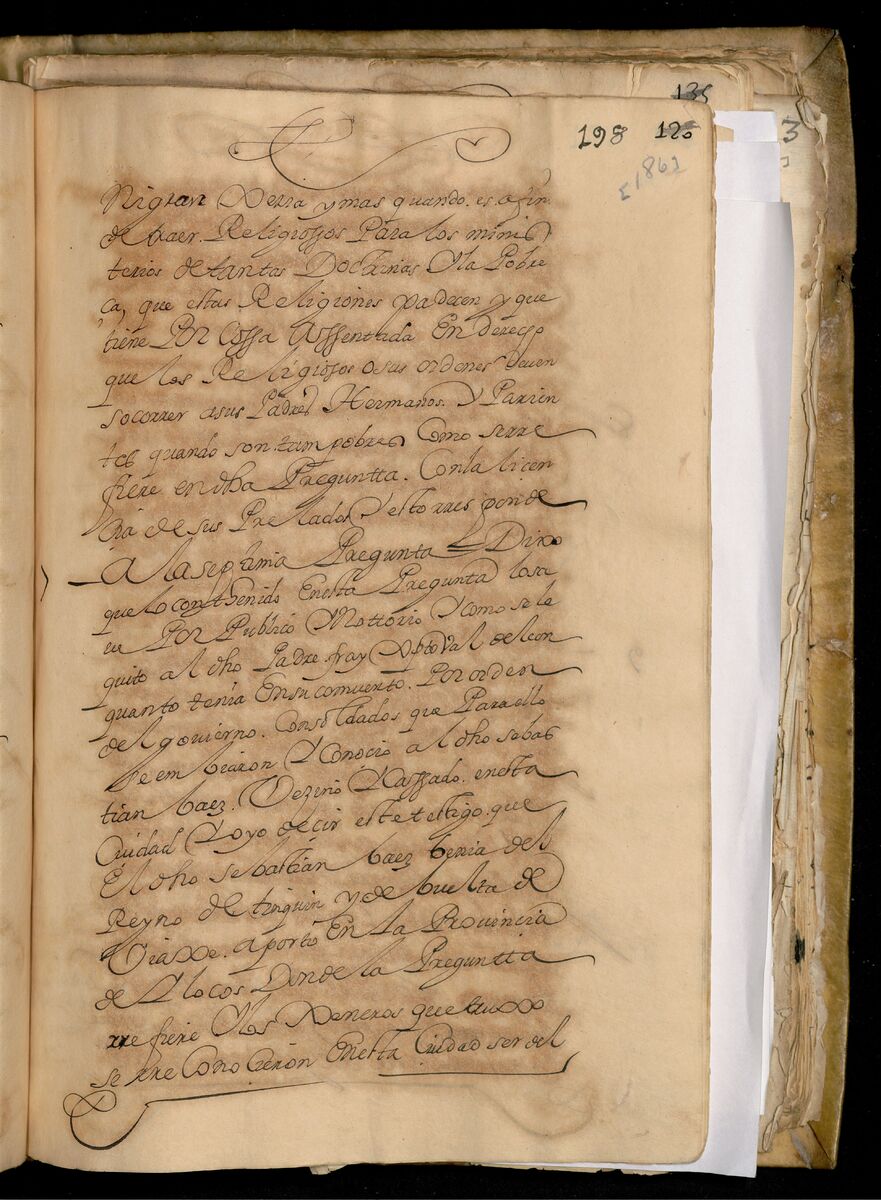 135
198 126
[1862
3
Ni gran Xeria y mas quando. es a fin.
de traer. Religiossos Para los minis
terios de tantas Doctrinas Y la Pobre
ça, que estas Religiones padecen y que
tiene Por Cossa Assentada En derecho
que los Religiosos de sus ordenes deuen
socorrer a sus Padres Hermanos. Y Parien
tes quando son. tam pobres Como serre
fiere en dha Preguntta. Con la licen
cia de sus Prelados Y esto rresponde
A la septima Pregunta Dixo
que lo conthenido En esta Pregunta lo sa
ue Por Publico Y Nottorio Y como se le
quito al dho Padre. fray Xptoval de leon
quanto tenia En su comuento. Por orden
del gouierno. Con soldados que Para ello
se embiaron Y Conocio al dho sebas
tian baez. Vezino Y Cassado. en esta
Ciudad Y oyo decir este testigo. que
El dho sebastian baez benia del
Reyno de tunquin y de buelta de
Viaxe. aporto En La Prouincia
de Ylocos Donde la Preguntta
rre fiere Y los Xeneros que truxo
se rre Conocieron En esta Ciudad ser del